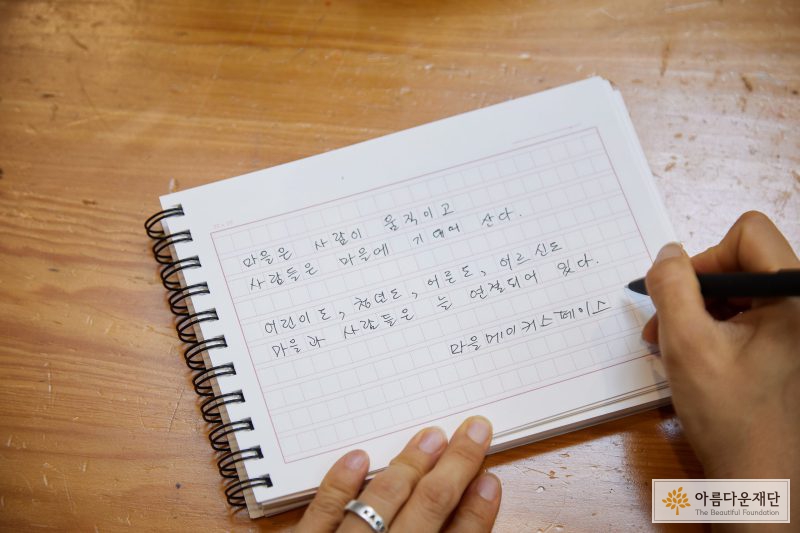 마을은 사람이 움직이고
사람들은 마을에 기대어 산다.
어린이도, 청년도, 어른도, 어르신도
마을과 사람들은 늘 연결되어 있다.
마을메이커스페이스
아름다운재단
The Beautiful Foundation